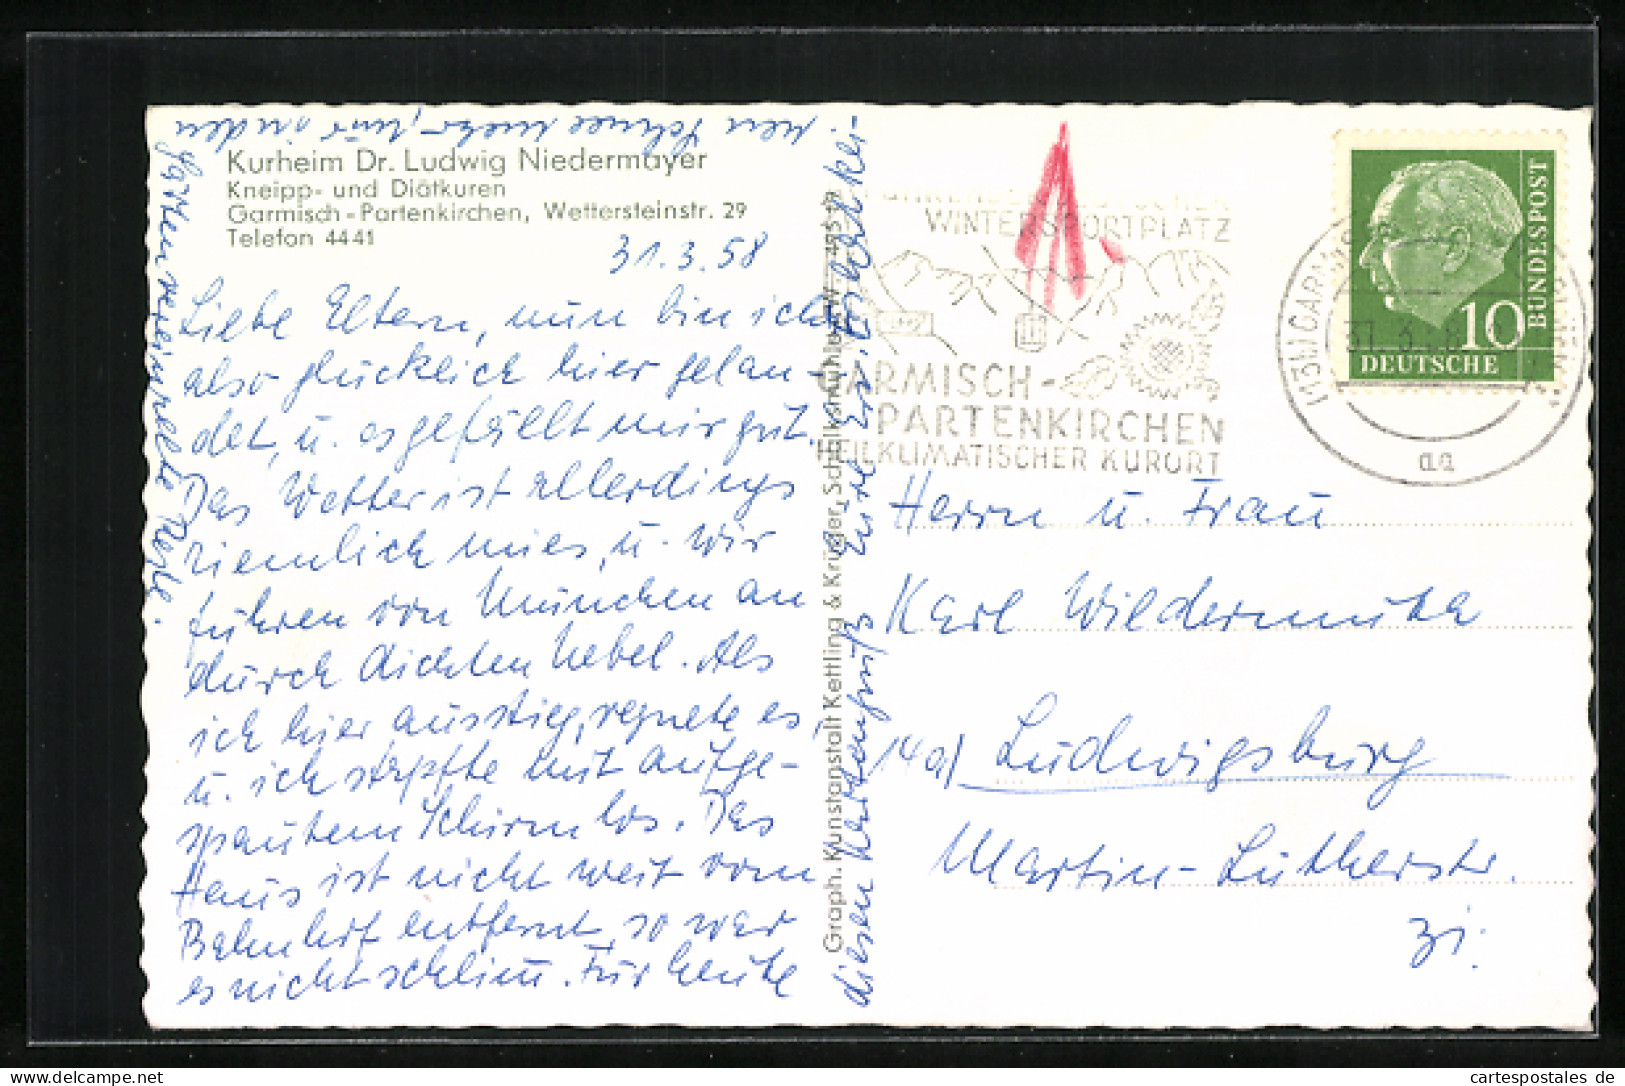 Kurheim Dr. Ludwig Niedermayer
Kneipp- und Diätkuren
Garmisch-Partenkirchen, Wettersteinstr. 29
Telefon 4441
31.3.58
Liebe Eltern, nun bin ich
also glücklich hier gelan-
det, u. es gefällt mir gut.
Das Wetter ist allerdings
ziemlich mies, u. wir
fuhren von München an
durch dichten Nebel. Als
ich hier ausstieg, regnete es,
u. ich stapfte mit aufge-
spanntem Schirm los. Das
Haus ist nicht weit vom
Bahnhof entfernt, so war
es nicht schlimm. Für heute
diesen Kartengruß Eure
kein Schnee mehr, nur in den
Gärten vereinzelte Reste.
Graph. Kunstanstalt Kettling & Krüger, Schalksmühle
WINTERSPORTPLATZ
GARMISCH-
PARTENKIRCHEN
HEILKLIMATISCHER KURORT
DEUTSCHE
BUNDESPOST
10
aa
Herrn u. Frau
Karl Wildermuth
14a) Ludwigsburg
Martin-Lutherstr.
31.
cartespostales de